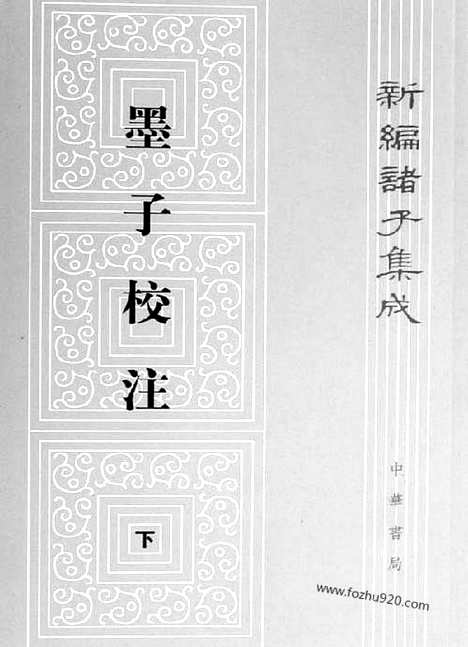 新編諸子集成
墨子校注
下
中華書局
www.fozhu920.com